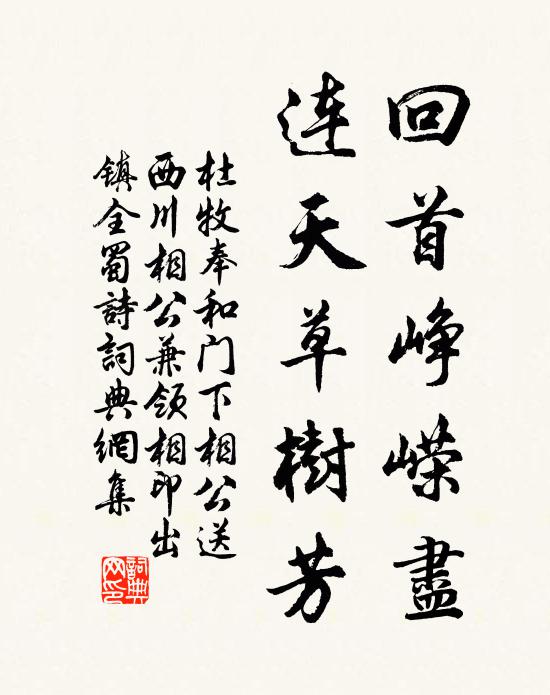 回首峥嵘盡
连天草樹芳
杜牧奉和门下相公送
西川相公兼领相印出
镇全蜀詩詞典網集
詞典
网印